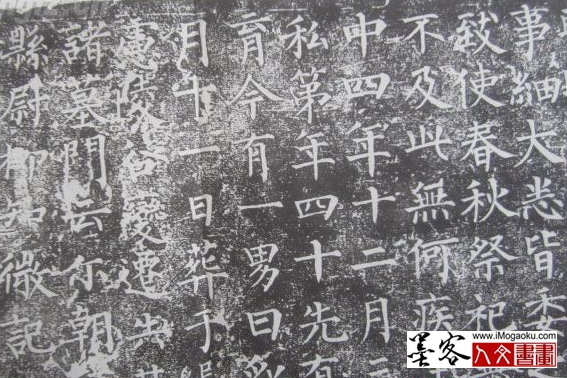 事細大悉皆委
致使春秋祭祀
不及此無何疾
中四年十二月
私第年四十先有
育令有一男曰
月十一日葬于
憲陵谷變遷
諸墓門云尔朝
縣尉柳知微記
墨客
www.iMogaoku.com
人文書畫